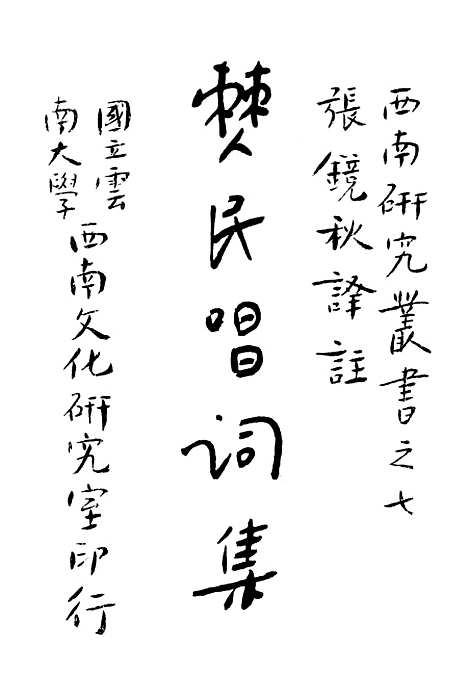 西南研究叢書之七
張鏡秋譯註
僰民唱词集
國立雲南大學西南文化研究室印行